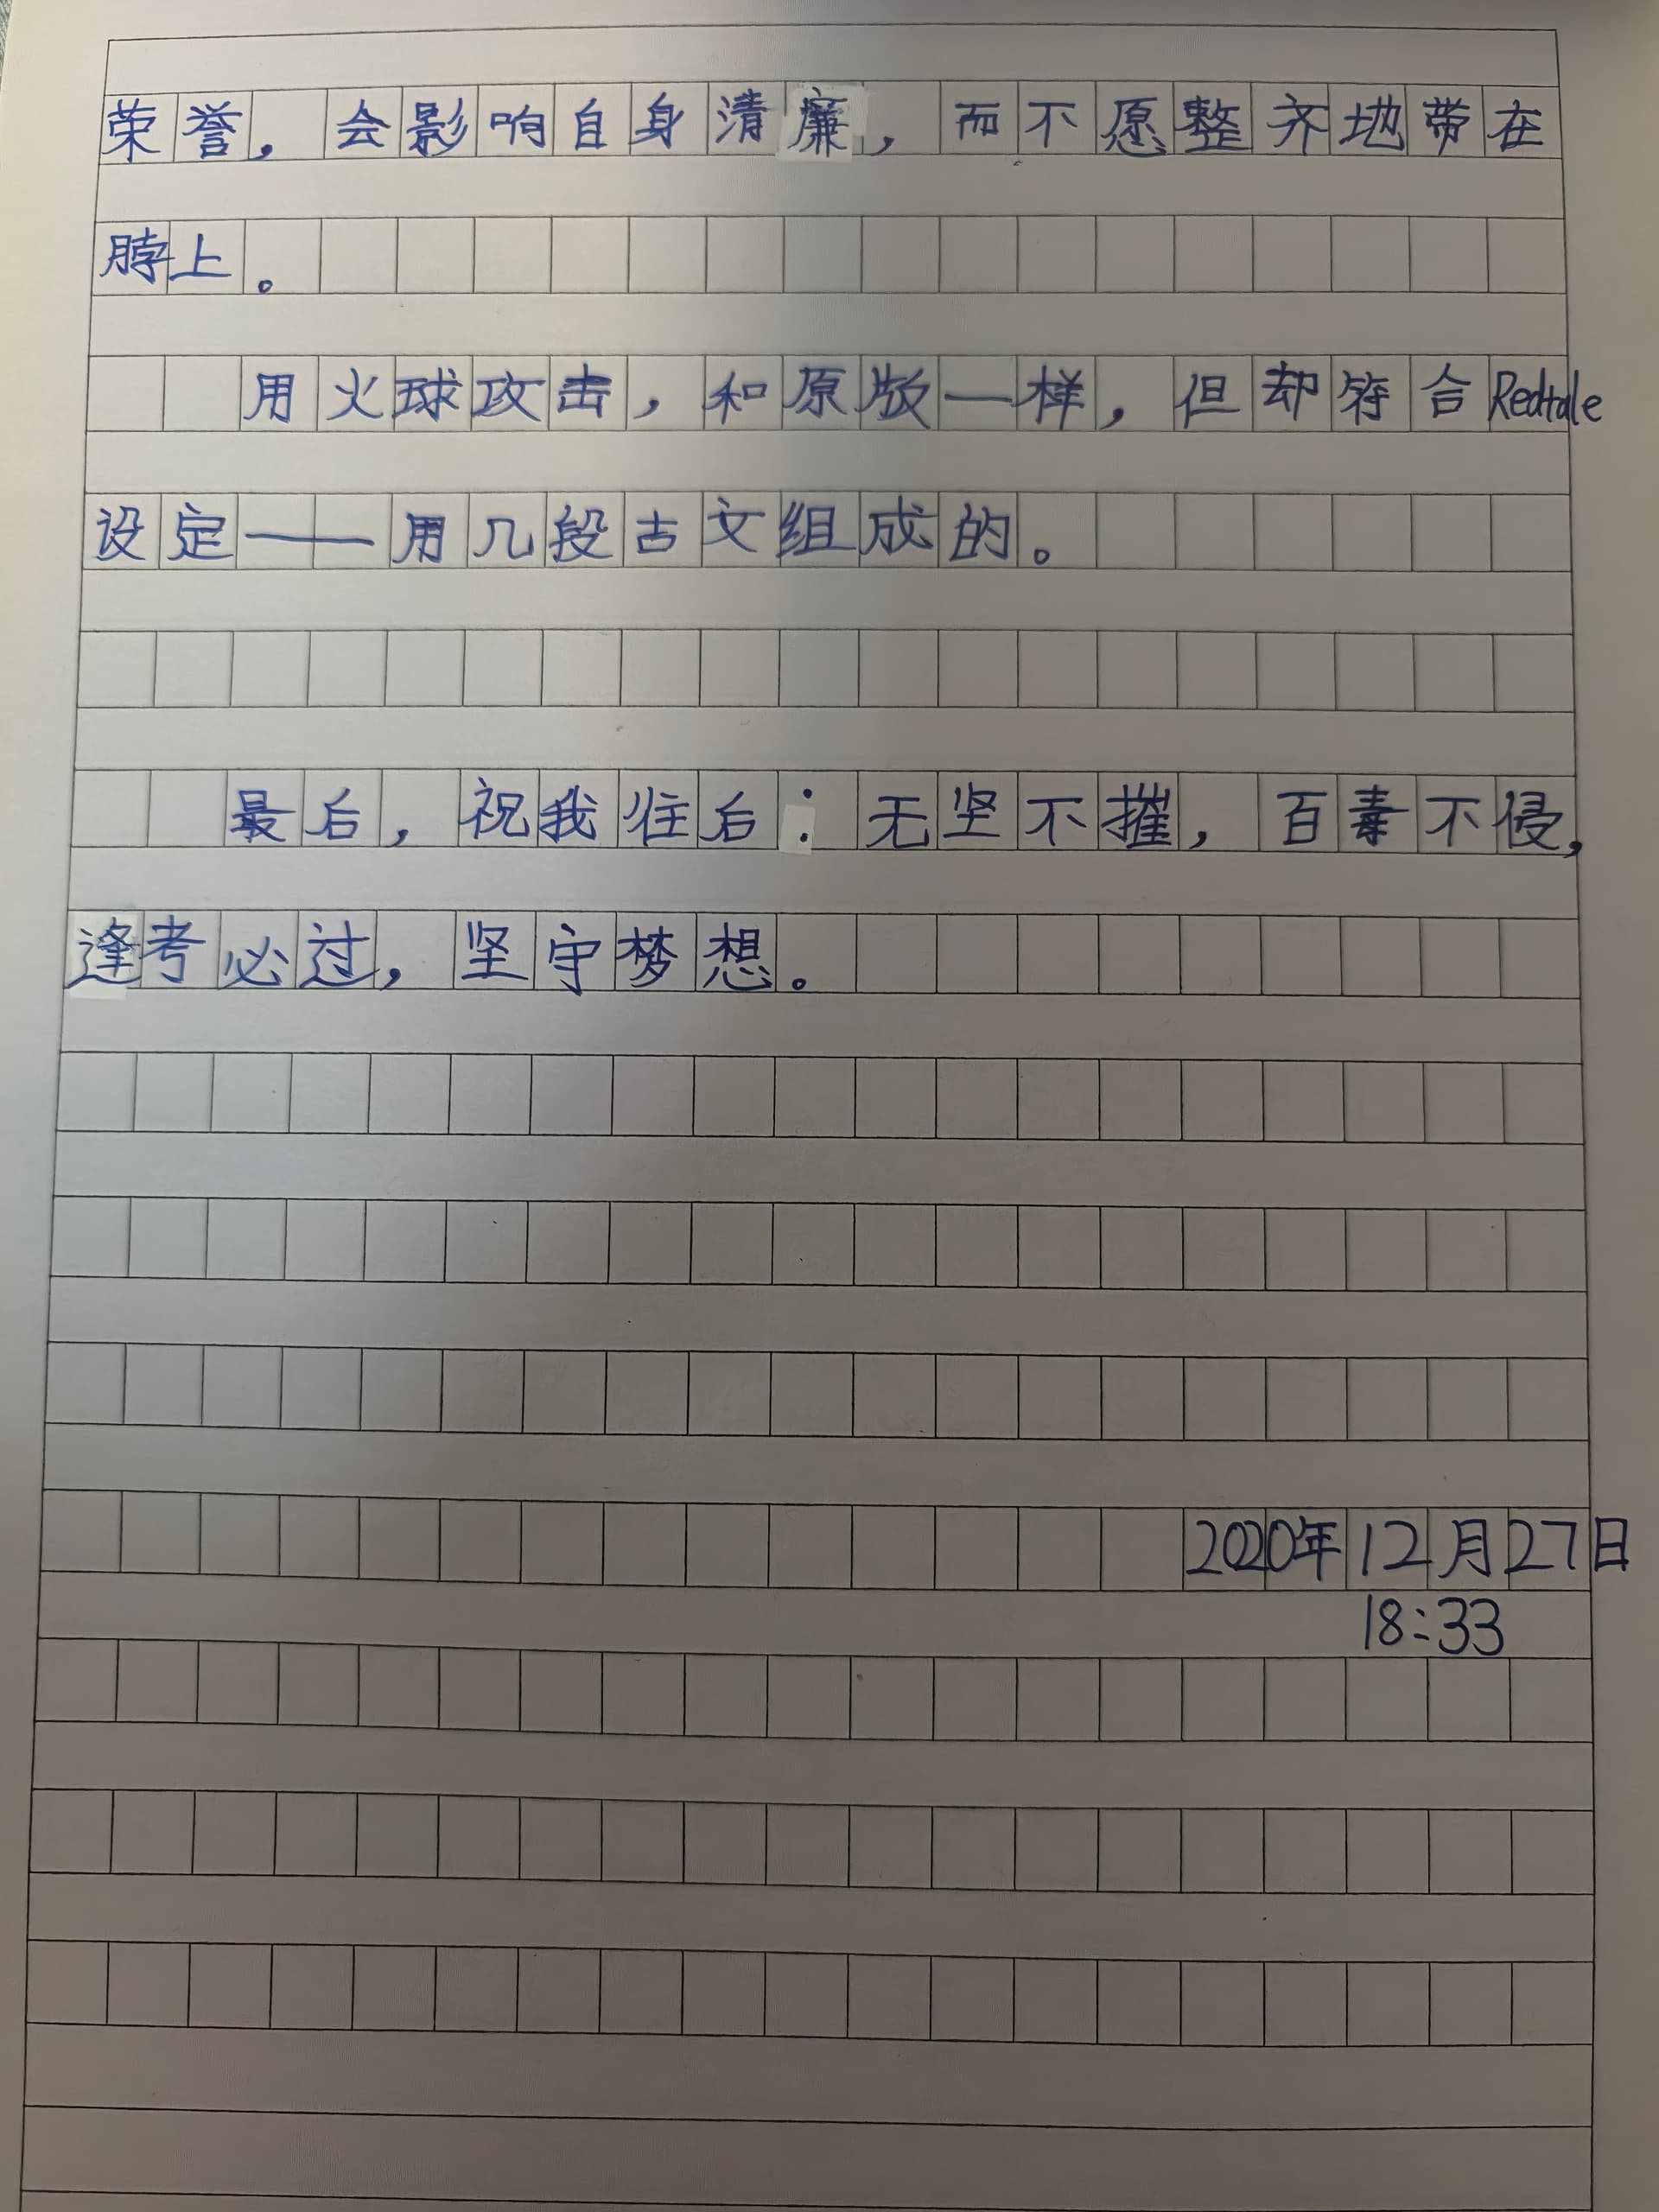 荣誉，会影响自身清廉，而不愿整齐地带在
脖上。
用火球攻击，和原版一样，但却符合Redtale
设定——用几段古文组成的。
最后，祝我往后：无坚不摧，百毒不侵，
逢考必过，坚守梦想。
2020年12月27日
18:33